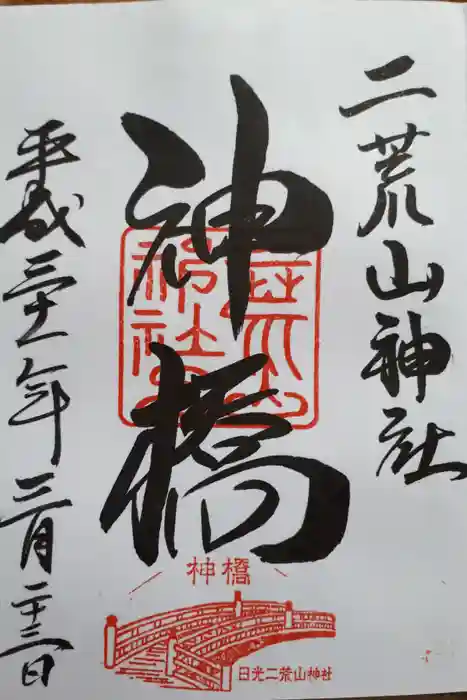 二荒山神社
神橋
平成三十一年三月二十三日
神橋
日光二荒山神社